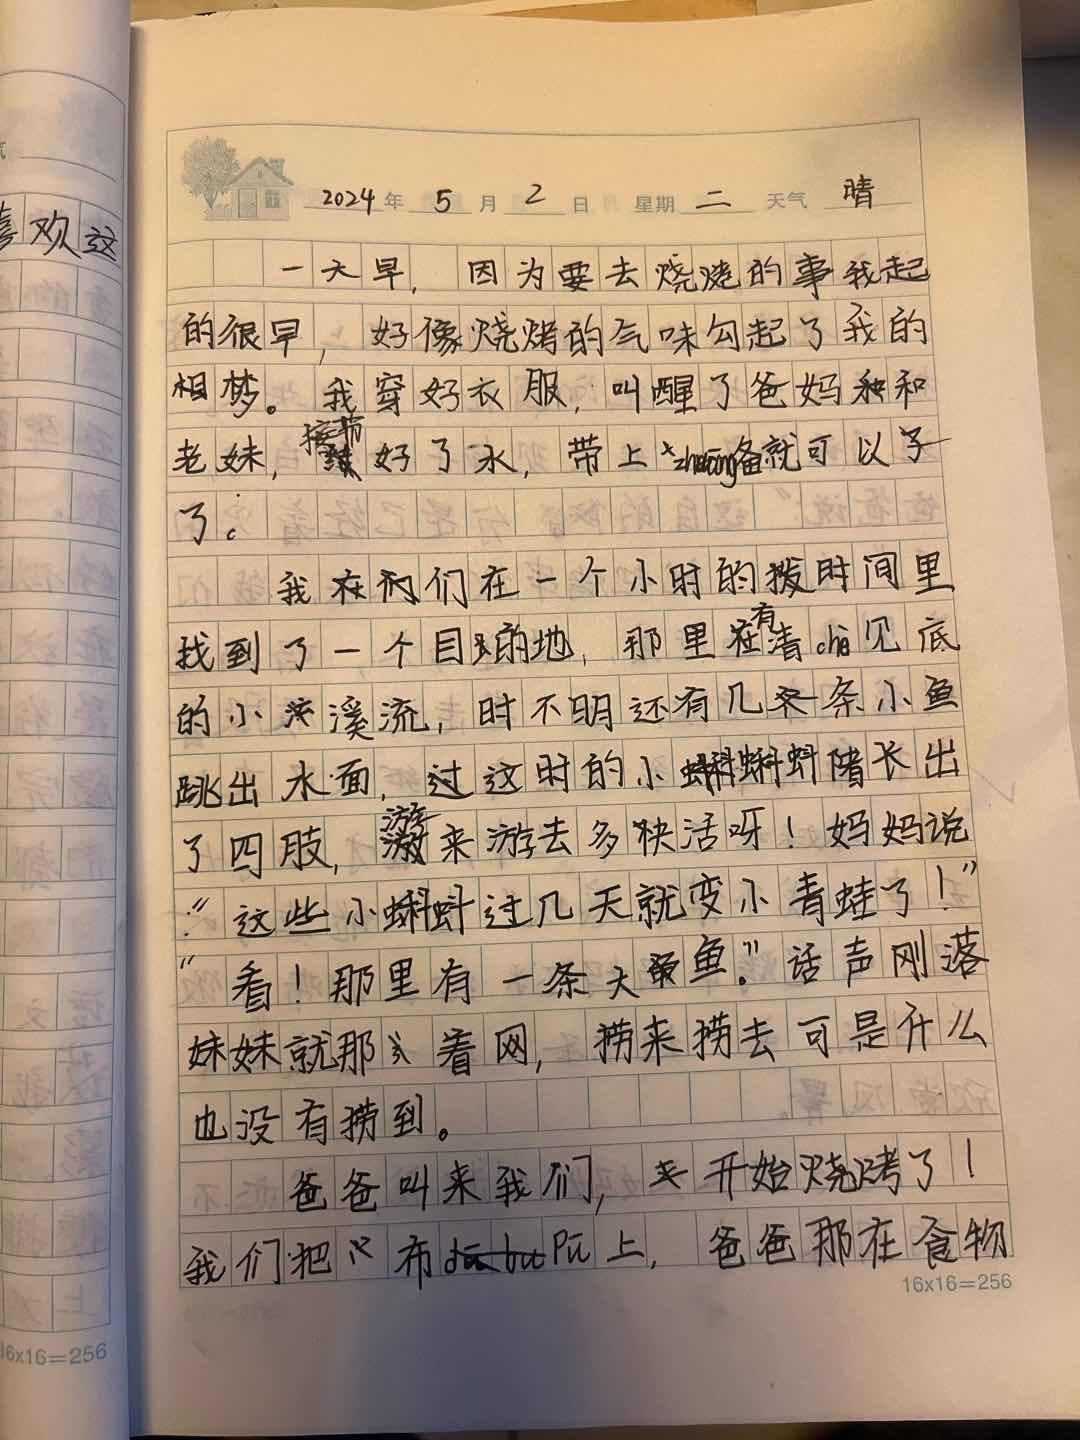 喜欢这
2024年 5月 2日 星期 二 天气 晴
一大早，因为要去烧烧的事我起
的很早，好像烧烤的气味勾起了我的
相梦。我穿好衣服，叫醒了爸妈和
老妹，接好了水，带上备就可以子
了。
我在们在一个小时的拨时间里
找到了一个目的地，那里有清chè见底
的小溪流，时不明还有几条小鱼
跳出水面，过这时的小蝌蚪陼长出
了四肢，游来游去多快活呀！妈妈说
：“这些小蝌蚪过几天就变小青蛙了！”
“看！那里有一条大鱼。”话声刚落
妹妹就那着网，捞来捞去可是什么
也没有捞到。
爸爸叫来我们，开始烧烤了！
我们把布pū上，爸爸那在食物
16x16=256
16x16=256